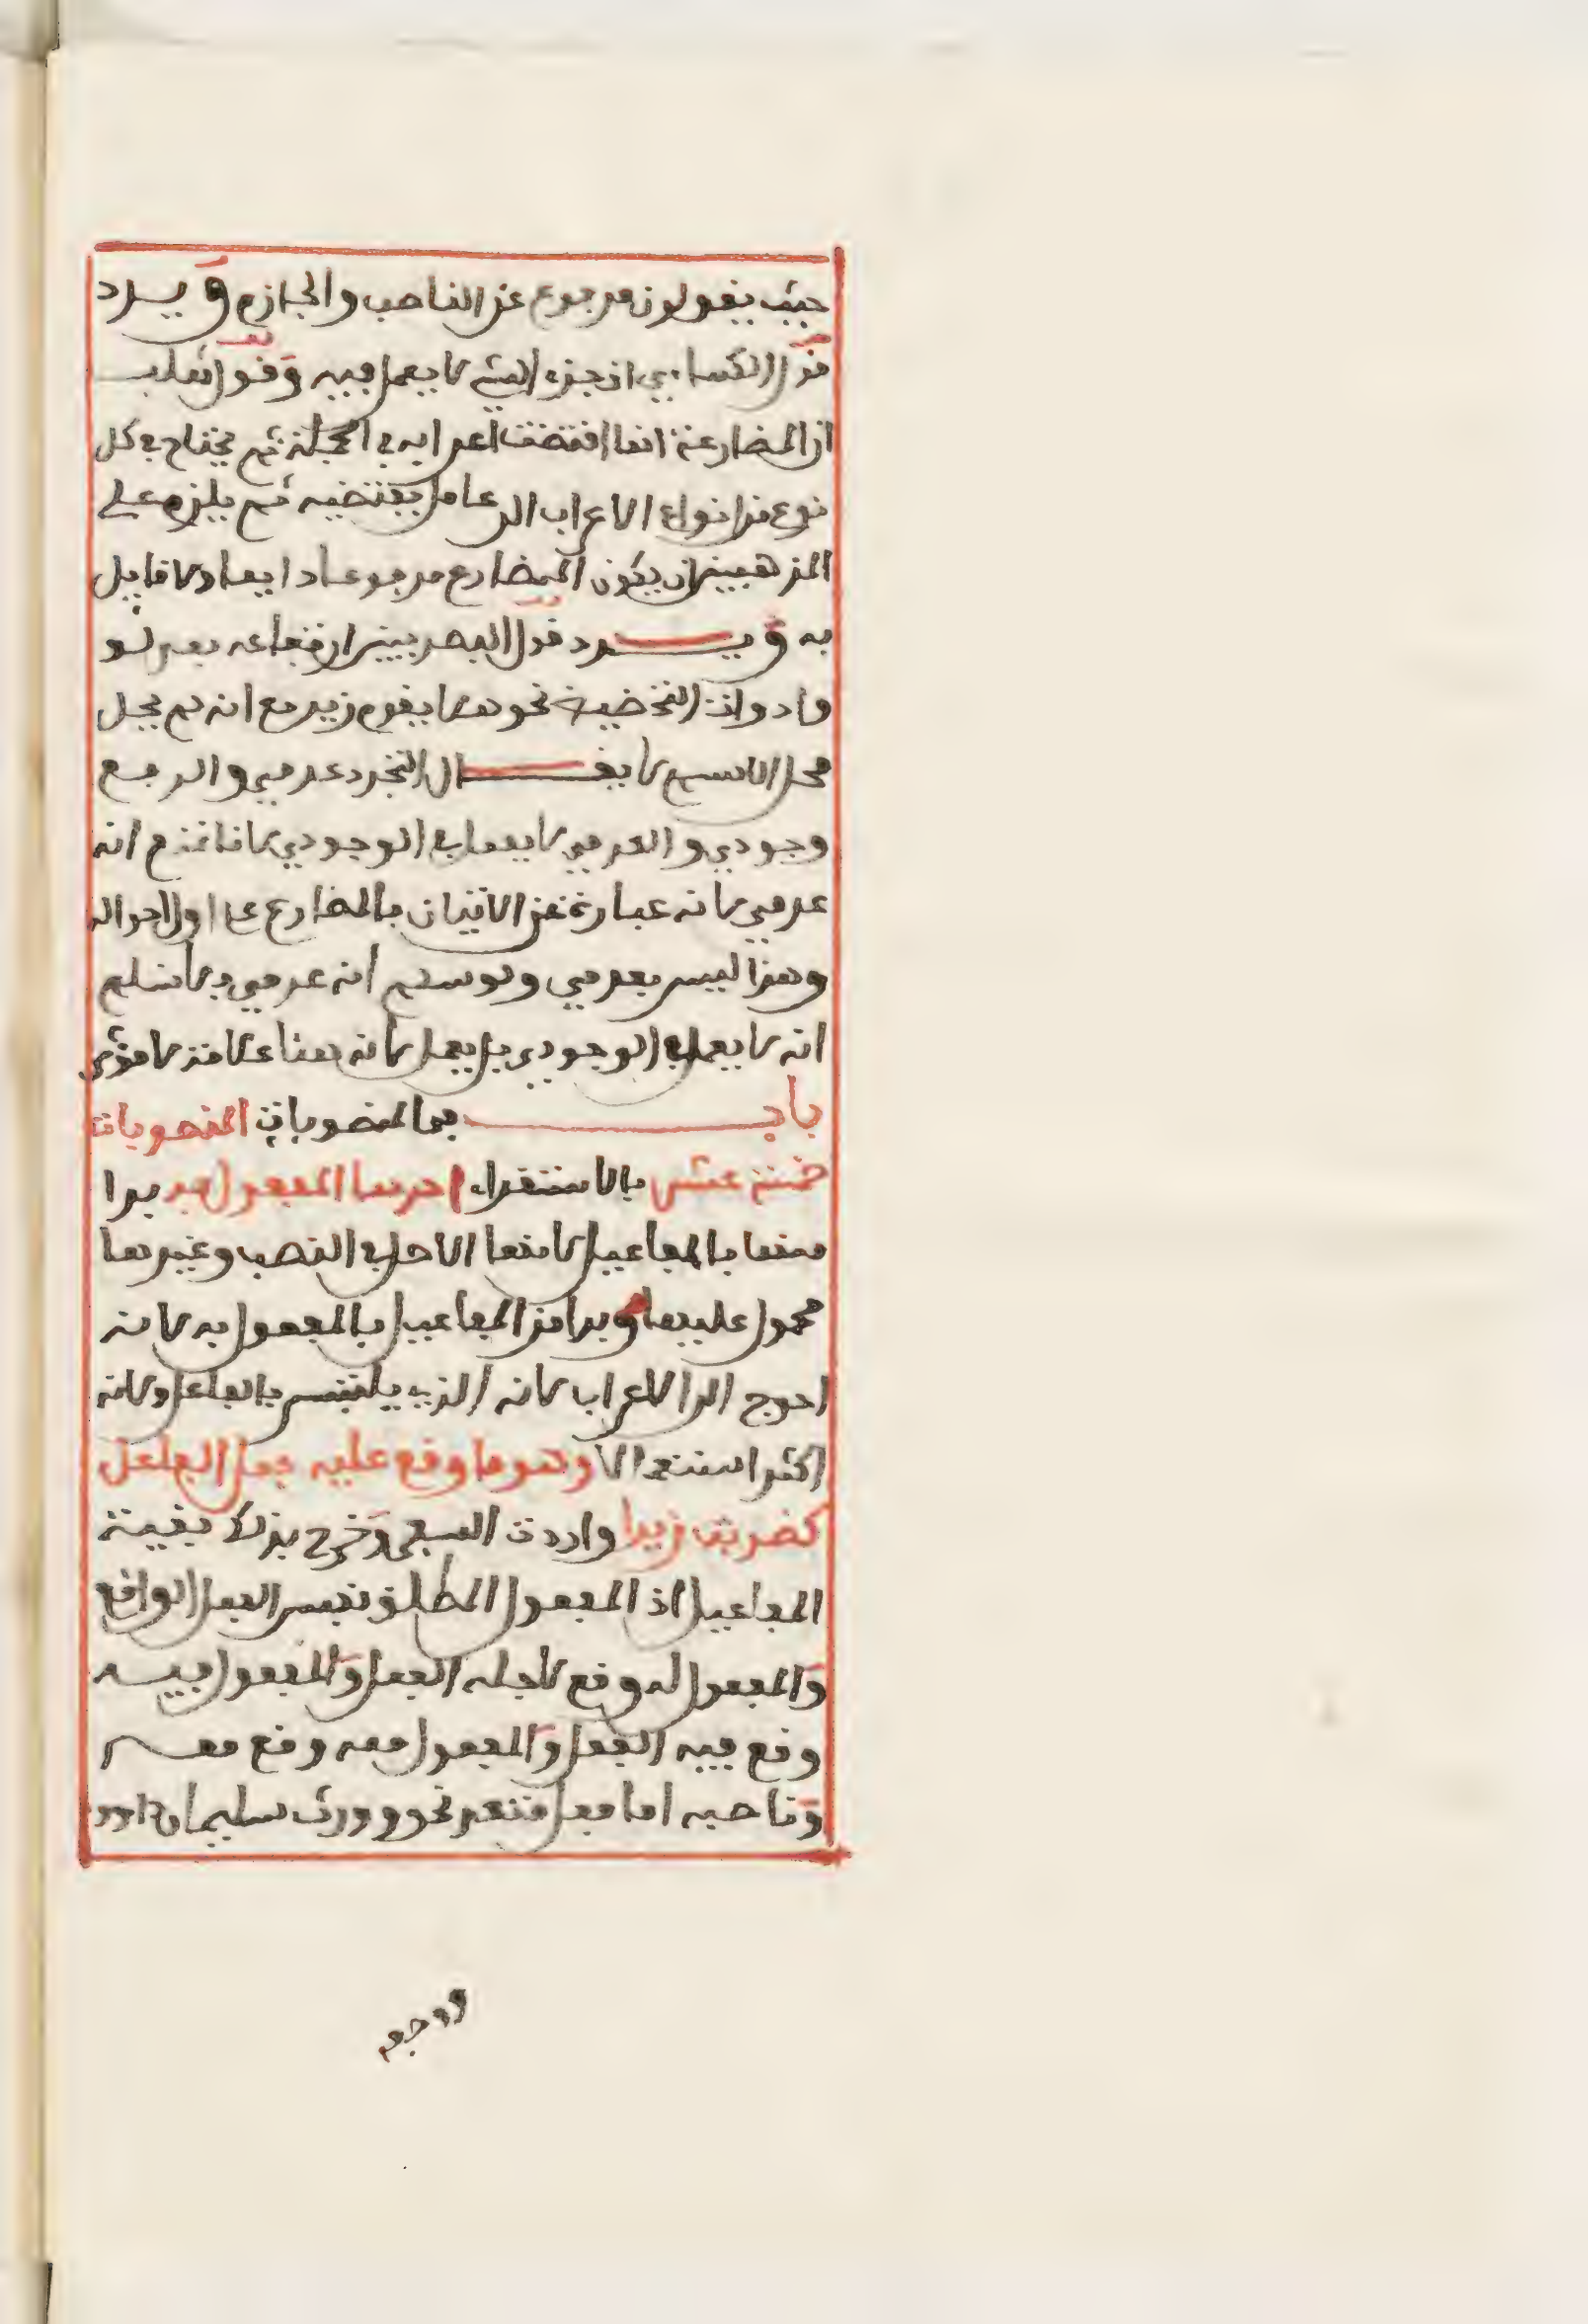 حيث يقولون مرفوع عن الناصب والجازم ويرد
قول الكسائي ان جزء الشيء لا يعمل فيه وقول ثعلب
ان المضارعة انما اقتضت اعرابه في الجملة ثم يحتاج في كل
نوع من انواع الاعراب الى عامل يقتضيه ثم يلزم على
المذهبين ان يكون المضارع مرفوعا دايما ولا قايل
به ويرد قول البصريين ارتفاعه بعد لو
وادوات التحضيض نحو هلا يقوم زيد مع انه لم يحل
محل الاسم لا يقال التجرد عدمي والرفع
وجودي والعدمي لا يعمل في الوجودي لانا نمنع انه
عدمي لانه عبارة عن الاتيان بالمضارع على اول احواله
وهذا ليس بعدمي ولو سلم انه عدمي فلا نسلم
انه لا يعمل في الوجودي بل يعمل لانه هنا علامة لا مؤثر
باب في المنصوبات المنصوبات
خمسة عشر بالاستقراء احدها المفعول به بدا
منها بالمفاعيل لانها الاصل في النصب وغيرها
محمول عليها وبدا من المفاعيل بالمفعول به لانه
احوج الى الاعراب لانه الذي يلتبس بالفاعل ولانه
اكثر استعمالا وهو ما وقع عليه فعل الفاعل
كضربت زيدا واردت السفر وخرج بذلك بقية
المفاعيل اذ المفعول المطلق نفس الفعل الواقع
والمفعول له وقع لاجله الفعل والمفعول فيه
وقع فيه الفعل والمفعول معه وقع معه
وناصبه اما فعل متعد نحو وورث سليمان داود